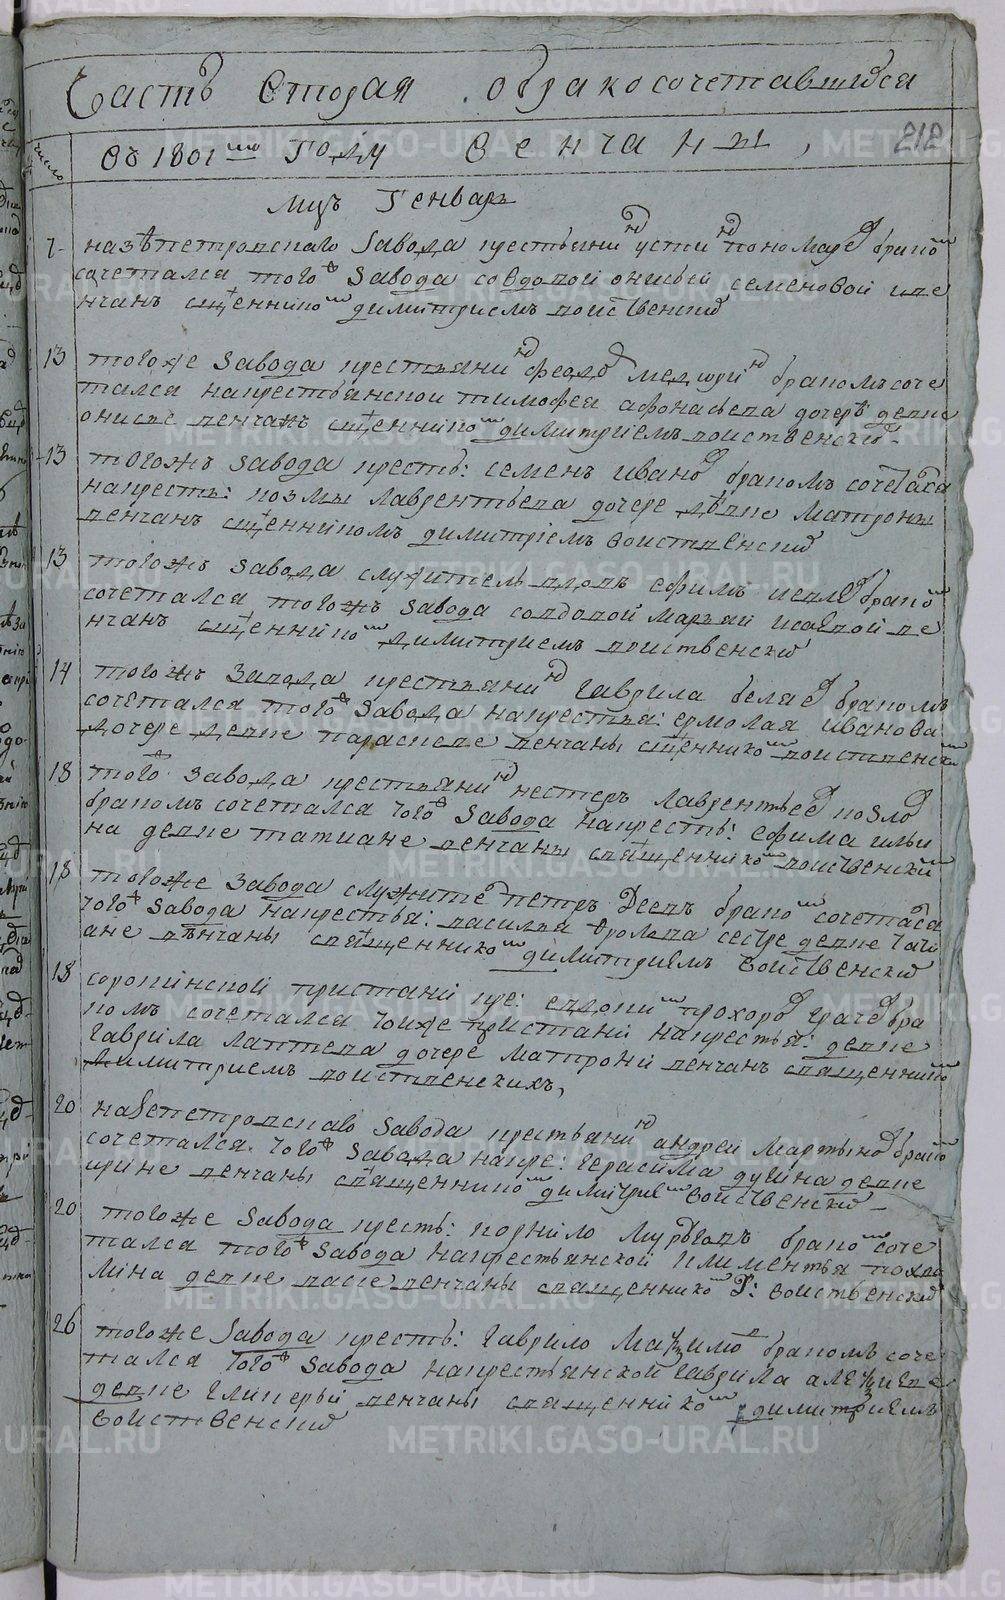 Часть вторая о бракосочетавшихся
число
въ 1801мъ году венчаны
212
мцъ Генварь
7 назепетровскаго завода крестьянинъ устинъ пономаревъ бракомъ
сочетался тогожъ завода со вдовой онисьей семеновой и ве
нчанъ сщенникомъ димитриемъ воиственскимъ
13 тогоже завода крестьянинъ федоръ бракомъ соче
тался на крестьянской тимофея афонасьева дочерѣ девке
онисье венчанъ сщенникомъ димитриемъ воиственскимъ
13 тогожъ завода кресть: семенъ ивановъ бракомъ сочетался
на кресть: козмы лаврентьева дочере дѣвке матроны
венчанъ сщенникомъ димитрiемъ воиственскимъ
13 тогожъ завода служитель вдовъ ефимъ бракомъ
сочетался тогожъ завода со вдовой марьей исаевой ве
нчанъ сщенникомъ димитриемъ воиственскимъ
14 тогожъ завода крестьянинъ гаврила беляевъ бракомъ
сочетался тогожъ завода на крестья: ермолая иванова
дочере девке параскеве венчаны сщенникомъ воиственским
18 тогожъ завода крестьянинъ нестеръ лаврентьевъ козловъ
бракомъ сочетался тогожъ завода на кресть: ефима ильи
на девке татиане венчаны священникомъ воиственскимъ
18 тогоже завода служитель петръ вдовъ бракомъ сочетался
тогожъ завода на крестья: василья фролова сестре девке тати
ане вѣнчаны священникомъ димитриемъ воиственским
18 сорокинской пристани кре: евдокимъ прохоровъ грачевъ бра
комъ сочетался тоиже пристани на крестья: девке
гаврила лаптева дочере матрони венчанъ священникомъ
димитриемъ воиственскихъ,
20 назепетровскаго завода крестьянинъ андреи мартыновъ бракомъ
сочетался тогожъ завода на кре: герасима душина девке
ирине венчаны священникомъ димитриемъ воиственским
20 тогоже завода кресть: корнило бракомъ соче
тался тогожъ завода на крестьянской климентья
девке васе венчаны священникомъ воиственскимъ
26 тогоже завода кресть: гаврило максимовъ бракомъ соче
тался тогожъ завода на крестьянской гаврила алексиева
девке гликерьи венчаны священникомъ димитриемъ
воиственским
METRIKI.GASO-URAL.RU